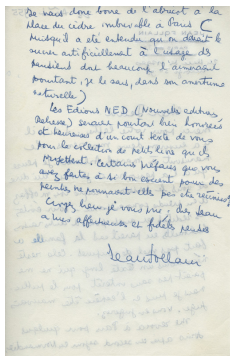 je vais donc boire de l'abricot à la
place du cidre imbuvable à Paris (
puisqu'il a été entendu qu'on devait le
sucrer artificiellement à l'usage des
parisiens dont beaucoup l'aimeraient
pourtant, je le sais, dans son amertume
naturelle)
Les Editions NED (Nouvelles éditions
) seraient pourtant bien honorées
et heureuses d'un court texte de vous
pour la collection de petits livres qu'ils
projettent. Certaines préfaces que vous
avez faites à si bon escient pour des
peintres ne pourraient-elles pas
Croyez bien, je vous prie, cher Jean
à mes affectueuses et fidèles pensées
Jean Follain